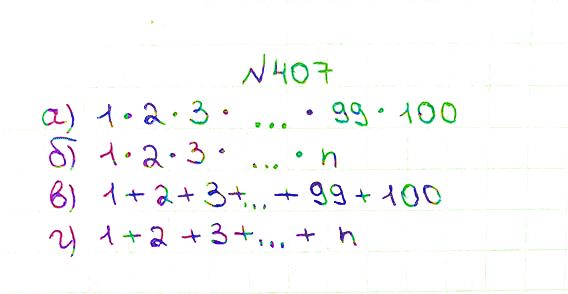 №407
а) 1 · 2 · 3 · ... · 99 · 100
б) 1 · 2 · 3 · ... · n
в) 1 + 2 + 3 + ... + 99 + 100
г) 1 + 2 + 3 + ... + n